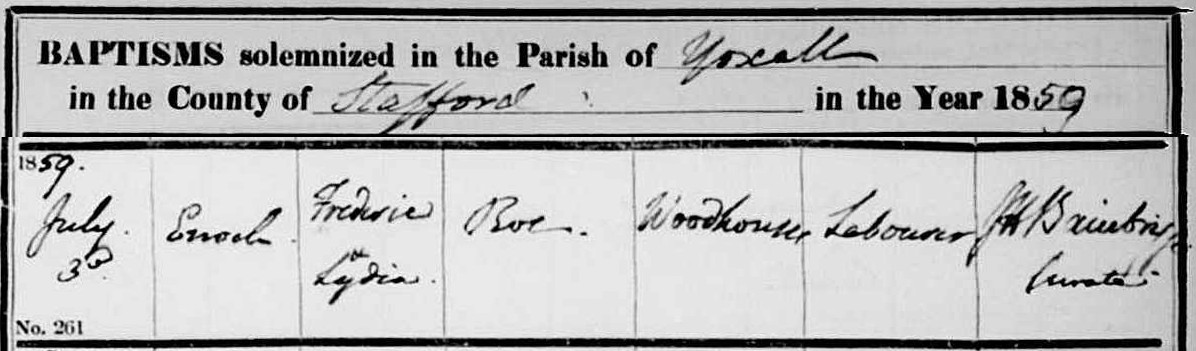 BAPTISMS solemnized in the Parish of Yoxall
in the County of Stafford in the Year 1859
1859.
July
3d
Enoch
Frederic
Lydia.
Roe.
Woodhouses
Labourer
Curate
No. 261